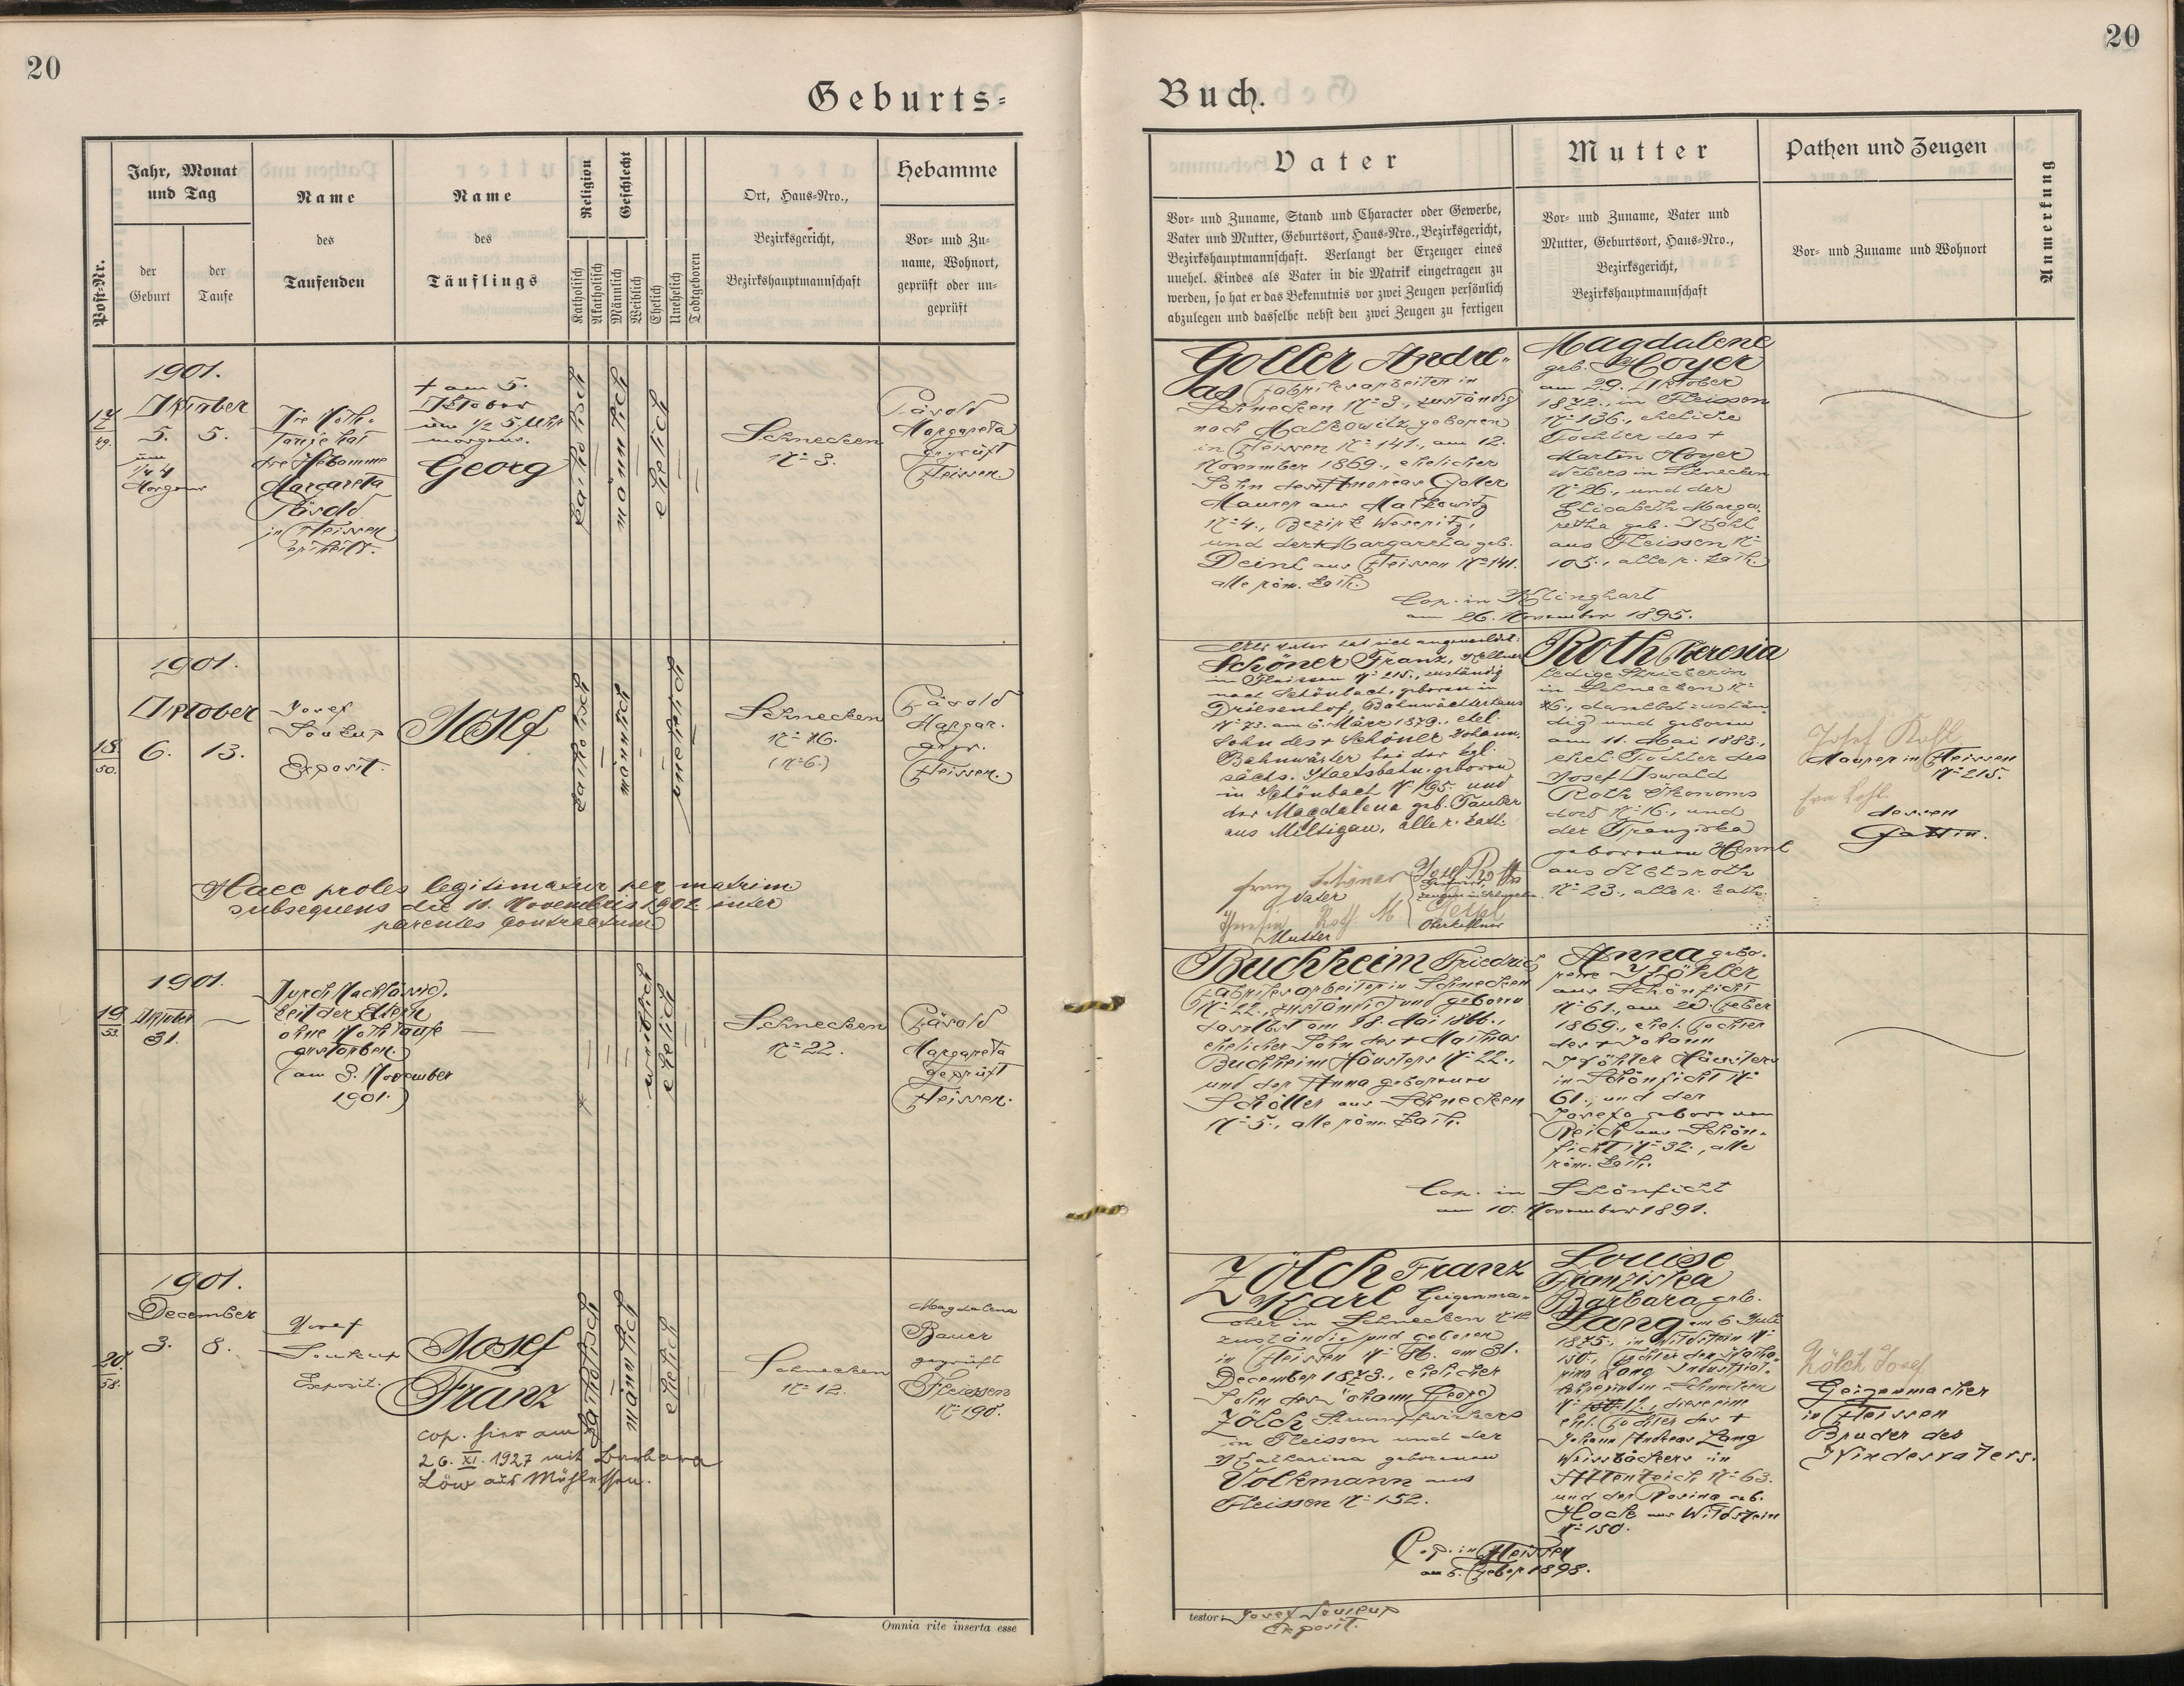 20
20
Geburts=
Buch.
Post-Nr.
Jahr, Monat
und Tag
der
Geburt
der
Taufe
Name
des
Taufenden
Name
des
Täuflings
Religion
Katholisch
Akatholisch
Geschlecht
Männlich
Weiblich
Ehelich
Unehelich
Todtgeboren
Ort, Haus-Nro.,
Bezirksgericht,
Bezirkshauptmannschaft
Hebamme
Vor- und Zu-
name, Wohnort,
geprüft oder un-
geprüft
Vater
Vor- und Zuname, Stand und Character oder Gewerbe,
Vater und Mutter, Geburtsort, Haus-Nro., Bezirksgericht,
Bezirkshauptmannschaft. Verlangt der Erzeuger eines
unehel. Kindes als Vater in die Matrik eingetragen zu
werden, so hat er das Bekenntnis vor zwei Zeugen persönlich
abzulegen und dasselbe nebst den zwei Zeugen zu fertigen
Mutter
Vor- und Zuname, Vater und
Mutter, Geburtsort, Haus-Nro.,
Bezirksgericht,
Bezirkshauptmannschaft
Pathen und Zeugen
Vor- und Zuname und Wohnort
Anmerkung
17
49.
1901.
Oktober
5. 5.
um
1/4 4
Morgens
Die Noth-
taufe hat
die Hebamme
Margareta
in Fleissen
ertheilt.
+ am 5.
Oktober
um 1/2 5 Uhr
morgens.
Georg
katholisch
männlich
ehelich
Schnecken
N: 3.
Margareta
geprüft
Fleissen
Goller Andre-
as Fabriksarbeiter in
Schnecken N: 3., zuständig
nach Malkowitz geboren
in Fleissen N: 141., am 12.
November 1869., ehelicher
Sohn des + Andreas Goller
Maurer aus Malkowitz
N: 4., Bezirk Weseritz,
und der + Margareta geb.
Deinl aus Fleissen N: 141.
alle röm. kath.
Magdalene
geb. Hoyer
am 29. Oktober
1872., in Fleissen
N: 136., eheliche
Tochter des +
Martin Hoyer
Webers in Schnecken
N: 26., und der
Elisabeth Marga-
retha geb.
aus Fleissen N:
105., alle r. kath.
Cop. in Klinghart
am 26. November 1895.
18
50.
1901.
Oktober
6. 13.
Josef
Soukup
Exposit.
Josef
katholisch
männlich
unehelich
Schnecken
N: 16.
(N: 6.)
Margar.
gepr.
Fleissen.
Haec proles legitimatur per matrim
subsequens die 11. Novembris 1902 inter
parentes contractum
Als Vater hat sich angemeldet:
Schöner Franz, Kellner
in Fleissen N: 215., zuständig
nach Schönbach, geboren in
Driesenhof, Bahnwächterhaus
N: 73. am 6. März 1879., ehel.
Sohn des + Schöner Johann,
Bahnwärter bei der kgl.
sächs. Staatsbahn, geboren
in Schönbach N: 195. und
der Magdalena geb. Tauber
aus Miltigau, alle r. kath.
Franz Schöner
Vater
Josef Roth
Theresia Roth
Mutter
Oberkellner
Roth Theresia
ledige Strickerin
in Schnecken N:
16., daselbst zustän-
dig und geboren
am 11. Mai 1883.,
ehel. Tochter des
Josef Oswald
Roth Ökonoms
dort N: 16., und
der Franziska
geborenen
aus
N: 23., alle r. kath.
Josef Kohl
Maurer in Fleissen
N: 215.
Eva Kohl
dessen
Gattin.
19
53.
1901.
Oktober
31.
Durch Nachlässig-
keit der Eltern
ohne Nothtaufe
gestorben.
(am 3. November
1901.)
weiblich
ehelich
Schnecken
N: 22.
Margareta
geprüft
Fleissen.
Buchheim Friedrich
Fabriksarbeiter in Schnecken
N: 22., zuständig und geboren
daselbst am 18. Mai 1866.,
ehelicher Sohn des + Mathias
Buchheim Häuslers N: 22.,
und der Anna geborenen
Schöller aus Schnecken
N: 5., alle röm. kath.
Anna gebo-
rene Köhler
aus Schönficht
N: 61., am 20. Feber
1869., ehel. Tochter
des + Johann
Köhler Häuslers
in Schönficht N:
61., und der
Josefa geborenen
Reich aus Schön-
ficht N: 32., alle
röm. kath.
Cop. in Schönficht
am 10. November 1891.
20.
58.
1901.
December
3. 8.
Josef
Soukup
Exposit.
Josef
Franz
cop. hier am
26. XI. 1927 mit Barbara
Löw aus Mühlessen.
katholisch
männlich
ehelich
Schnecken
N: 12.
Magdalena
Bauer
geprüft
Fleissen
N: 190.
Zölch Franz
Karl Geigenma-
cher in Schnecken N: 12
zuständig und geboren
in Fleissen N: am 31.
December 1873., ehelicher
Sohn des Johann Georg
Zölch Strumpfwirkers
in Fleissen und der
Katharina geborenen
Volkmann aus
Fleissen N: 152.
Louise
Franziska
Barbara geb.
Lang am 6. Juli
1875., in Wildstein N:
150., Tochter der Katha-
rina Lang Industrial-
lehrerin in Schnecken
N: 12., diese eine
ehel. Tochter des +
Johann Andreas Lang
Weissbäckers in
Altenteich N: 63.
und der Rosina geb.
Hock aus Wildstein
N: 150.
Cop. in Fleissen
am 5. Feber 1898.
Zölch Josef
Geigenmacher
in Fleissen
Bruder des
Kindesvaters.
Omnia rite inserta esse
testor: Josef Soukup
Exposit.